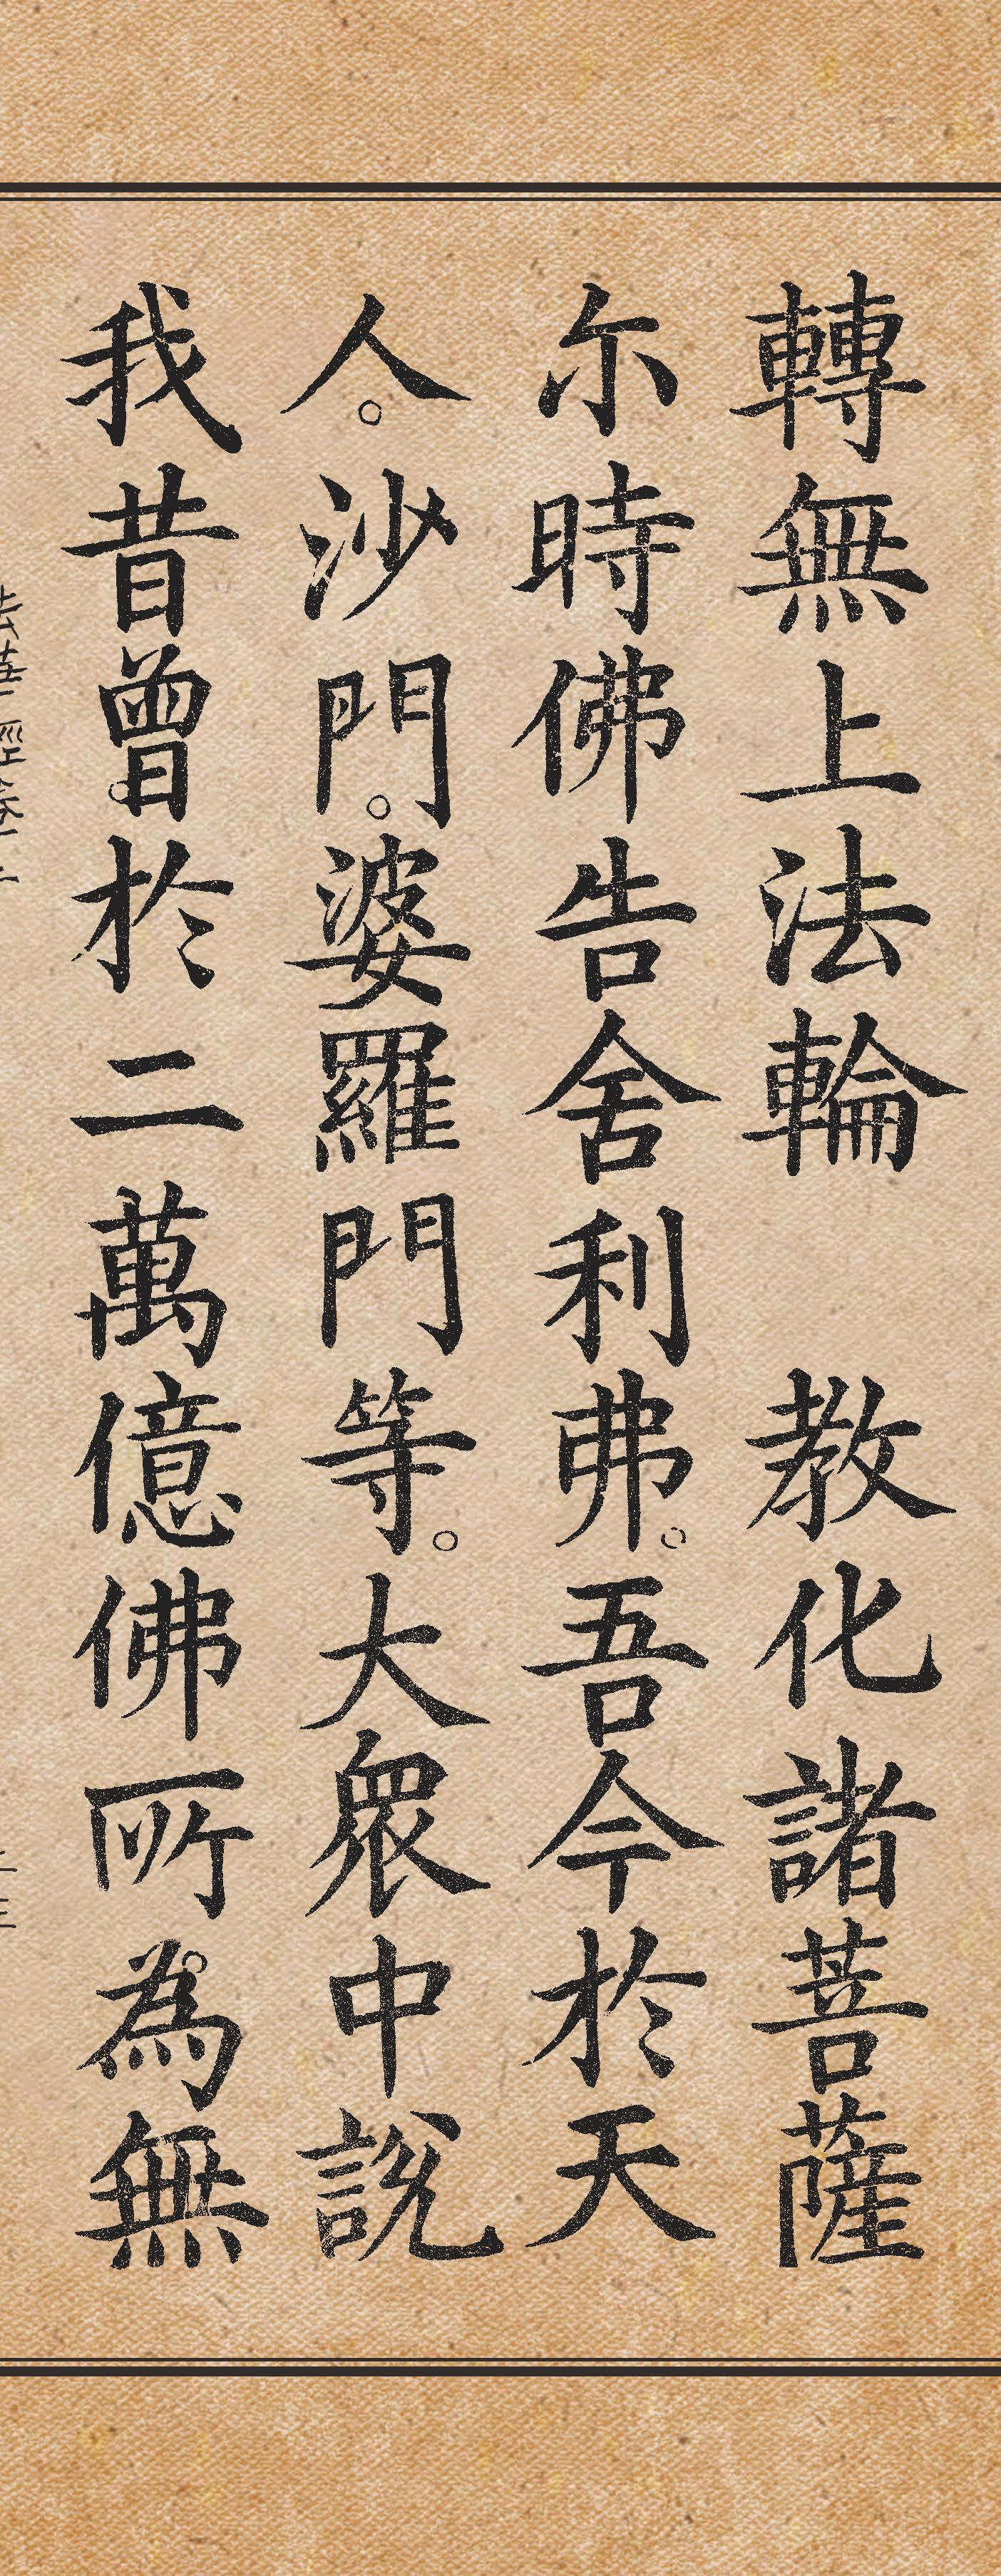 轉無上法輪　教化諸菩薩
尓時佛告舍利弗。吾今於天
人。沙門。婆羅門等。大衆中說
我昔曾。於二萬億佛所。為無